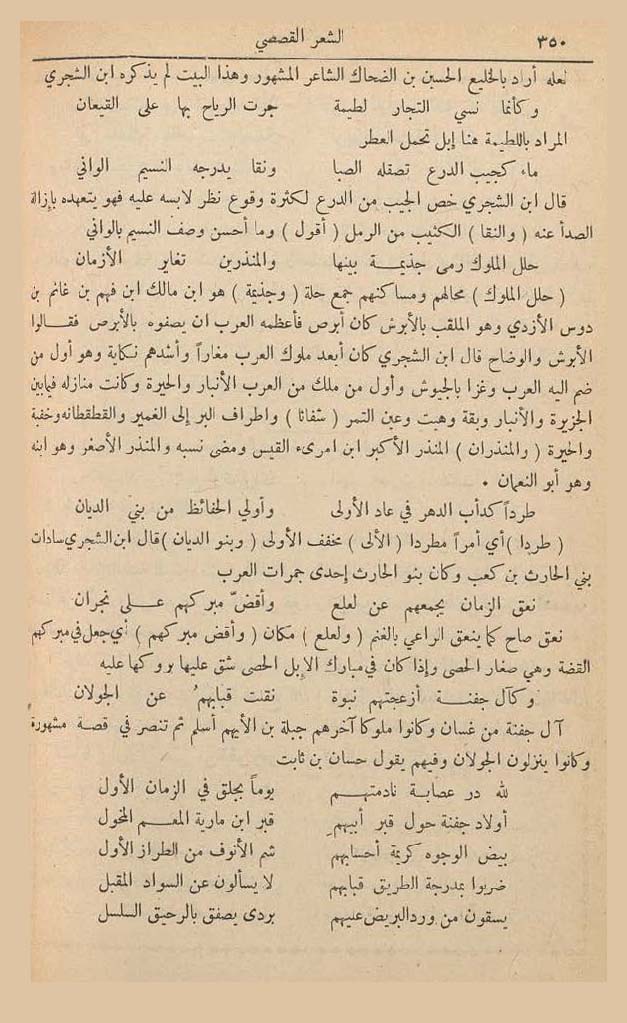 ٣٥٠
الشعر القصصي
لعله أراد بالخليع الحسين بن الضحاك الشاعر المشهور وهذا البيت لم يذكره ابن الشجري
وكأنما نسي التجار لطيمة جرت الرياح بها على القيعان
المراد باللطيمة هنا إبل تحمل العطر
ماء كجيب الدرع تصقله الصبا ونقا يدرجه النسيم الواني
قال ابن الشجري خص الجيب من الدرع لكثرة وقوع نظر لابسه عليه فهو يتعهده بإزالة
الصدأ عنه ( والنقا ) الكثيب من الرمل ( أقول ) وما أحسن وصف النسيم بالواني
حلل الملوك رمى جذيمة بينها والمنذرين تغاير الأزمان
( حلل الملوك ) محالهم ومساكنهم جمع حلة ( وجذيمة ) هو ابن مالك ابن فهم بن غانم بن
دوس الأزدي وهو الملقب بالأبرش كان أبرص فأعظمه العرب ان يصفوه بالأبرص فقالوا
الأبرش والوضاح قال ابن الشجري كان أبعد ملوك العرب مغاراً وأشدهم نكاية وهو أول من
ضم اليه العرب وغزا بالجيوش وأول من ملك من العرب الأنبار والحيرة وكانت منازله فيما بين
الجزيرة والأنبار وبقة وهيت وعين التمر ( شفاثا ) واطراف البر إلى الغمير والقطقطانه وخفية
والحيرة ( والمنذران ) المنذر الأكبر ابن امرىء القيس ومضى نسبه والمنذر الأصغر وهو ابنه
وهو أبو النعمان .
طرداً كدأب الدهر في عاد الأولى وأولي الحفائظ من بني الديان
( طردا ) أي أمراً مطردا ( الألى ) مخفف الأولى ( وبنو الديان ) قال ابن الشجري سادات
بني الحارث بن كعب وكان بنو الحارث إحدى جمرات العرب
نعق الزمان بجمعهم عن لعلع وأقضّ مبركهم على نجران
نعق صاح كما ينعق الراعي بالغنم ( ولعلع ) مكان ( وأقض مبركهم ) أي جعل في مبركهم
القضة وهي صغار الحصى وإذا كان في مبارك الإبل الحصى شق عليها بروكها عليه
وكآل جفنة أزعجتهم نبوة نقلت قبابهم عن الجولان
آل جفنة من غسان وكانوا ملوكا آخرهم جبلة بن الأيهم أسلم ثم تنصر في قصة مشهورة
وكانوا ينزلون الجولان وفيهم يقول حسان بن ثابت
لله در عصابة نادمتهم يوماً بجلق في الزمان الأول
أولاد جفنة حول قبر أبيهم قبر ابن مارية المعم المخول
بيض الوجوه كريمة أحسابهم شم الأنوف من الطراز الأول
ضربوا بمدرجة الطريق قبابهم لا يسألون عن السواد المقبل
يسقون من ورد البريض عليهم بردى يصفق بالرحيق السلسل